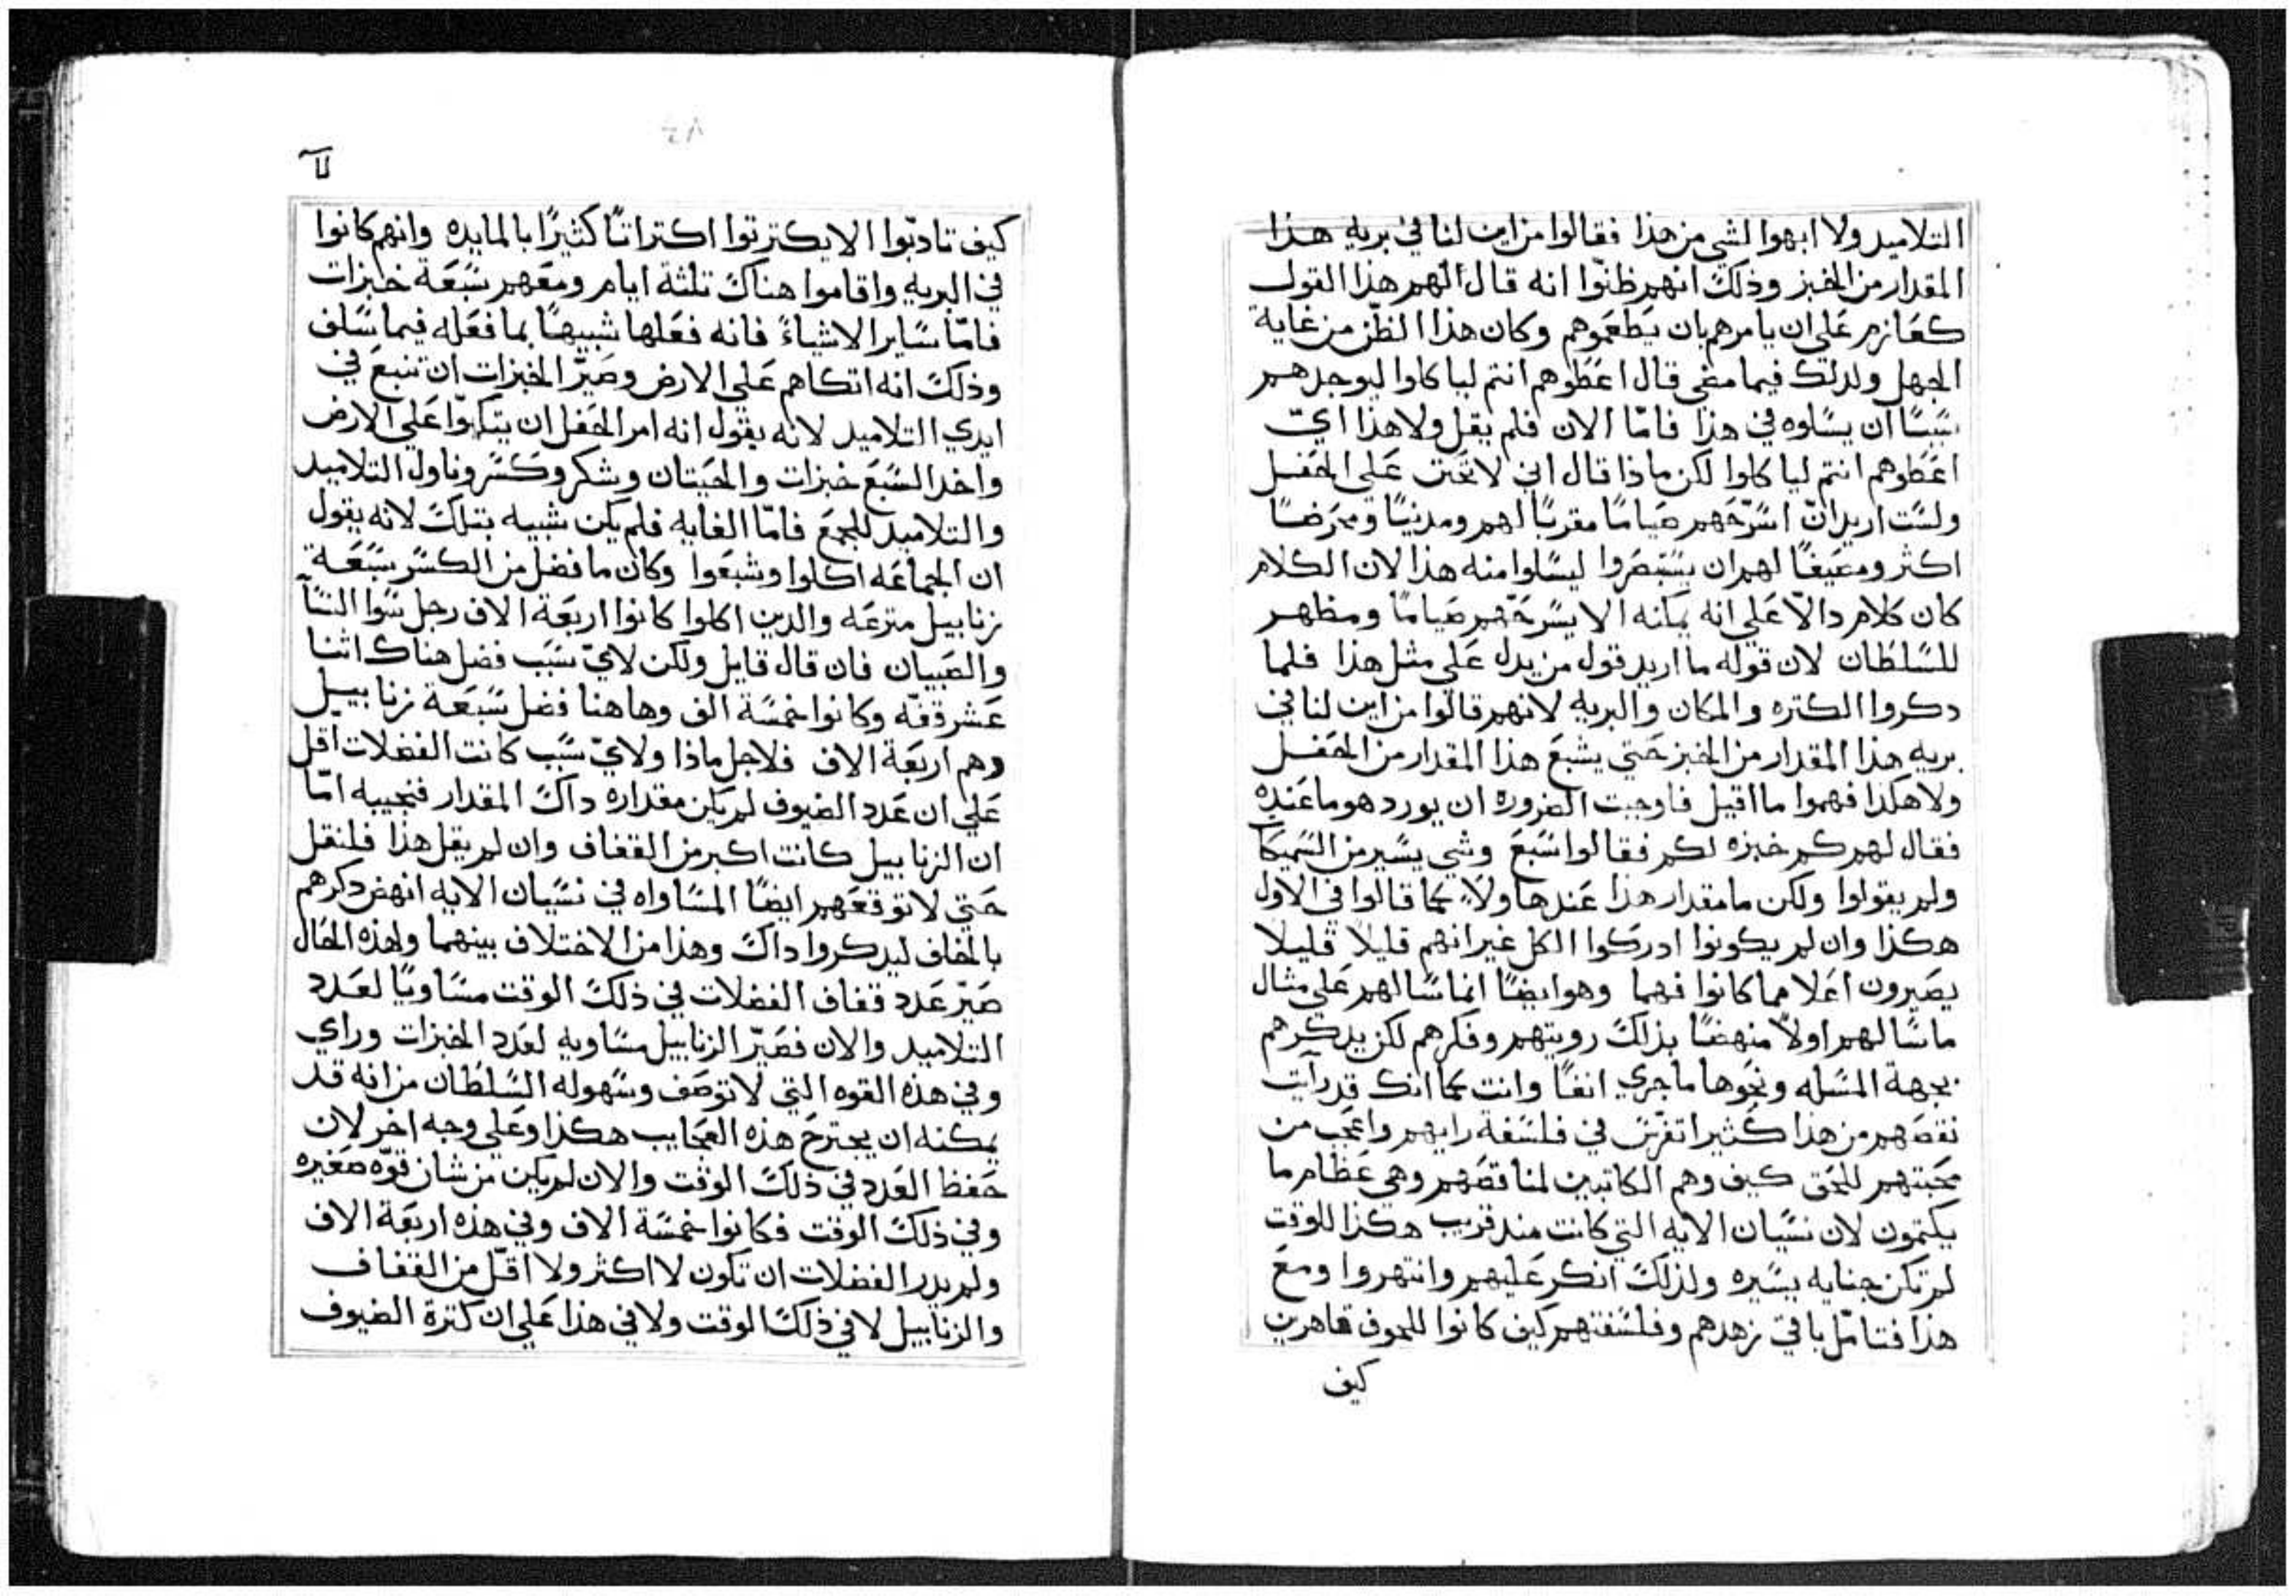 التلاميد ولا ابهوا لشي من هذا فقالوا من اين لنا في بريه هذا
المقدار من الخبز وذلك انهم ظنّوا انه قال الهم هذا القول
كعازم علي ان يامرهم بان يطعموهم وكان هذا الظن من غاية
الجهل ولدلك فيما مضي قال اعطوهم انتم ليا كلوا ليوجدهم
سببًا ان يسالوه في هذا فامّا الان فلم يقل ولا هذا ايّ
اعطوهم انتم ليا كلوا لكن ماذا قال اني لاتحنن علي الحفل
ولست اريد انّ اسرّحهم صيامًا مقربًا لهم ومدنيًا ومحرضًا
اكثر ومعيغًا لهم ان يستبصروا ليسالوا منه هذا لان الكلام
كان كلام دالّا علي انه يمكنه الا يسرحّهم صيامًا ومظهر
للسلطان لان قوله ما اريد قول من يدل علي مثل هذا فلما
دكروا الكتره والمكان والبريه لانهم قالوا من اين لنا في
بريه هذا المقدار من الخبز حتي يشبع هذا المقدار من الحفل
ولا هكذا فهموا ما اقيل فاوجبت الضروره ان يورد هو ما عنده
فقال لهم كم خبزه لكم فقالوا سبع وشي يسير من السميكا
ولم يقولوا ولكن ما مقدار هذا عند هاولاء كما قالوا في الاول
هكذا وان لم يكونوا ادركوا الكل غير انهم قليلا قليلا
يصيرون اعلا مما كانوا فهما وهو ايضًا انما سالهم علي مثال
ما سالهم اولًا منهضًا بذلك رويتهم وفكرهم لكن يدكرهم
بجهة المسله ونحوها ما جري انفًا وانت كما انك قد رايت
نقصهم من هذا كثيرا تفرّس في فلسفة رايهم واعجب من
محبتهم للحق كيف وهم الكاتبين لمناقصهم وهي عظام ما
يكتمون لان نسيان الايه التي كانت مند قريب هكذا للوقت
لم تكن جنايه يسيره ولذلك انكر عليهم وانتهروا ومع
هذا فتامّل باقي زهدهم وفلسفتهم كيف كانوا للجوف قاهرين
كيف
كيف تادبّوا الا يكترتوا اكتراتًا كثيرًا بالمايده وانهم كانوا
في البريه واقاموا هناك تلثة ايام ومعهم سبعة خبزات
فامّا ساير الاشياء فانه فعلها شبيهًا بما فعله فيما سلف
وذلك انه اتكاهم علي الارض وصيّر الخبزات ان تنبع في
ايدي التلاميد لانه يقول انه امر الحفل ان يتكوّا علي الارض
واخد السبع خبزات والحيتان وشكر وكسر وناول التلاميد
والتلاميد للجمع فامّا الغايه فلم يكن شبيه بتلك لانه يقول
ان الجماعه اكلوا وشبعوا وكان ما فضل من الكسر سبعة
زنابيل مترعه والدين اكلوا كانوا اربعة الاف رجل سوا النسا
والصبيان فان قال قايل ولكن لايّ سبب فضل هناك اثنا
عشر قفّه وكانوا خمسة الف وهاهنا فضل سبعة زنابيل
وهم اربعة الاف فلاجل ماذا ولايّ سبب كانت الفضلات اقل
علي ان عدد الضيوف لم يكن مقداره داك المقدار فنجيبه امّا
ان الزنابيل كانت اكبر من القفاف وان لم يقل هذا فلنقل
حتي لا توقعهم ايضًا المساواه في نسيان الايه انهض دكرهم
بالخلاف ليدكروا داك وهذا من الاختلاف بينهما ولهذه الحال
صيّر عدد قفاف الفضلات في ذلك الوقت مساويًا لعدد
التلاميد والان فصيّر الزنابيل مساويه لعدد الخبزات وراي
وفي هذه القوه التي لا توصف وسهوله السلطان من انه قد
يمكنه ان يجترح هذه العجايب هكذا وعلي وجه اخر لان
حفظ العدد في ذلك الوقت والان لم يكن من شان قوّه صغيره
وفي ذلك الوقت فكانوا خمسة الاف وفي هذه اربعة الاف
ولم يدر الفضلات ان تكون لا اكثر ولا اقلّ من القفاف
والزنابيل لا في ذلك الوقت ولا في هذا علي ان كترة الضيوف